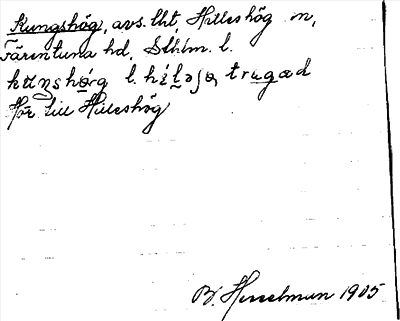 Kungshög, avs. lht, Hilleshög sn,
Färentuna hd, Sthlm. l.
kuŋshø̄rg l. hìləʃə, trægæd
Hör till Hilleshög
B. Hesselman 1905